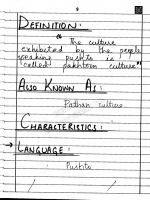 DEFINITION:
" The culture
exhibited by the people
speaking pushto is
called pakhtoon culture."
ALSO KNOWN AS:
Pathan culture
CHARACTERISTICS:
→ LANGUAGE:
Pushto